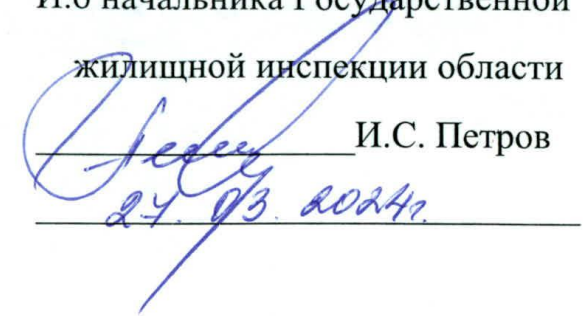 И.о начальника Государственной
жилищной инспекции области
И.С. Петров
27. 03. 2024г.